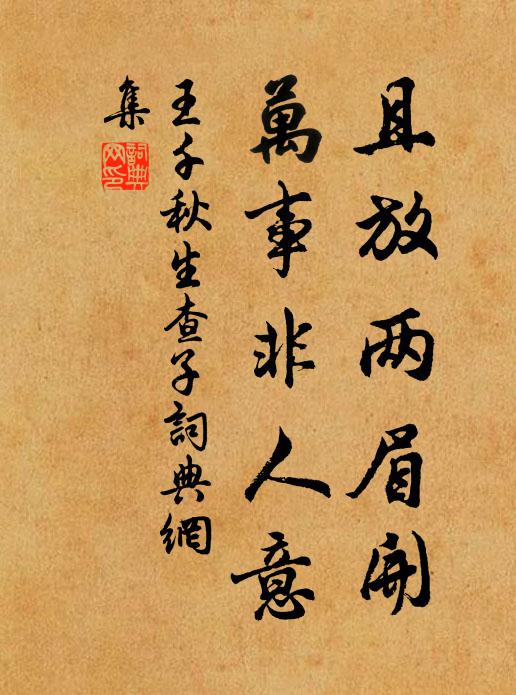 且放两眉開
萬事非人意
王千秋生查子詞典網
集
詞典網印